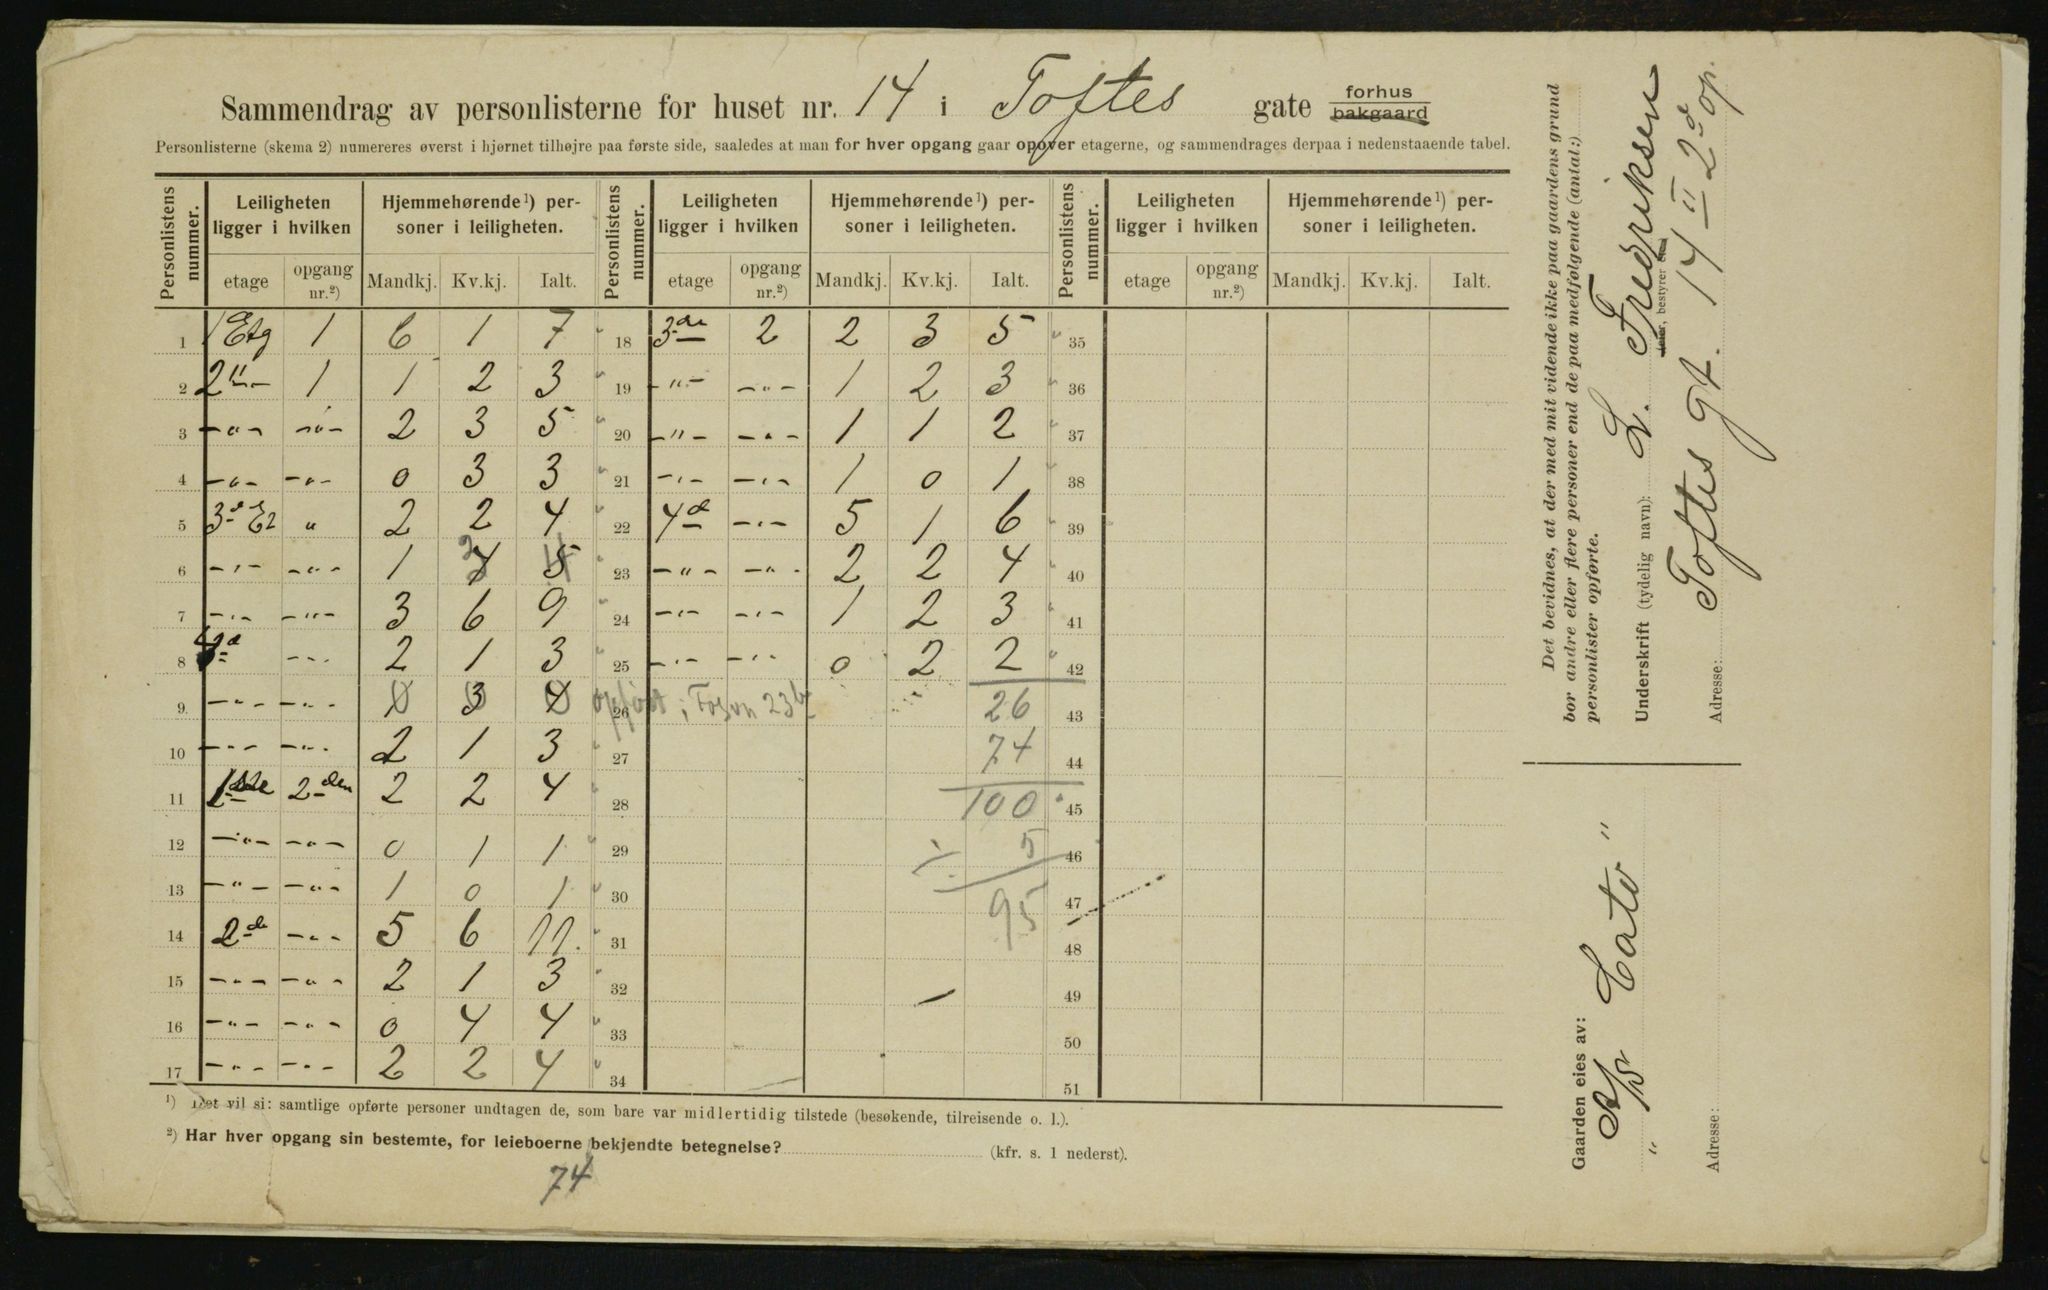 Sammendrag av personlisterne for huset nr. 14 i Toftes gate forhus bakgaard
Personlisterne (skema 2) numereres øverst i hjørnet tilhøjre paa første side, saaledes at man for hver opgang gaar opover etagerne, og sammendrages derpaa i nedenstaaende tabel.
Personlistens nummer. Leiligheten ligger i hvilken Hjemmehørende¹) personer i leiligheten. Personlistens nummer. Leiligheten ligger i hvilken Hjemmehørende¹) personer i leiligheten. Personlistens nummer. Leiligheten ligger i hvilken Hjemmehørende¹) personer i leiligheten.
etage opgang nr.²) Mandkj. Kv.kj. Ialt. etage opgang nr.²) Mandkj. Kv.kj. Ialt. etage opgang nr.²) Mandkj. Kv.kj. Ialt.
1 1 Etg 1 6 1 7 18 3de 2 2 3 5 35
2 2 -"- 1 1 2 3 19 -"- -"- 1 2 3 36
3 -"- -"- 2 3 5 20 -"- -"- 1 1 2 37
4 -"- -"- 0 3 3 21 -"- -"- 1 0 1 38
5 3d Et " 2 2 4 22 4d -"- 5 1 6 39
6 -"- -"- 1 4 3 5 4 23 -"- -"- 2 2 4 40
7 -"- -"- 3 6 9 24 -"- -"- 1 2 3 41
8 4d -"- 2 1 3 25 -"- -"- 0 2 2 42
9 -"- -"- 1 0 3 0 4 0 opført i 23 26 26 43
10 -"- -"- 2 1 3 27 74 44
11 1ste 2den 2 2 4 28 100 45
12 -"- -"- 0 1 1 29 ÷ 5 46
13 -"- -"- 1 0 1 30 95 47
14 2de -"- 5 6 11 31 48
15 -"- -"- 2 1 3 32 49
16 -"- -"- 0 4 4 33 50
17 -"- -"- 2 2 4 34 51
¹) Det vil si: samtlige opførte personer undtagen de, som bare var midlertidig tilstede (besøkende, tilreisende o. l.).
²) Har hver opgang sin bestemte, for leieboerne bekjendte betegnelse? (kfr. s. 1 nederst).
74
Det bevidnes, at der med mit vidende ikke paa gaardens grund
bor andre eller flere personer end de paa medfølgende (antal:)
personlister opførte.
Underskrift (tydelig navn): L. Fredriksen
eier, bestyrer
Adresse: Toftes gt. 14 II 2d op.
Gaarden eies av:
A/S
" Cato "
Adresse: